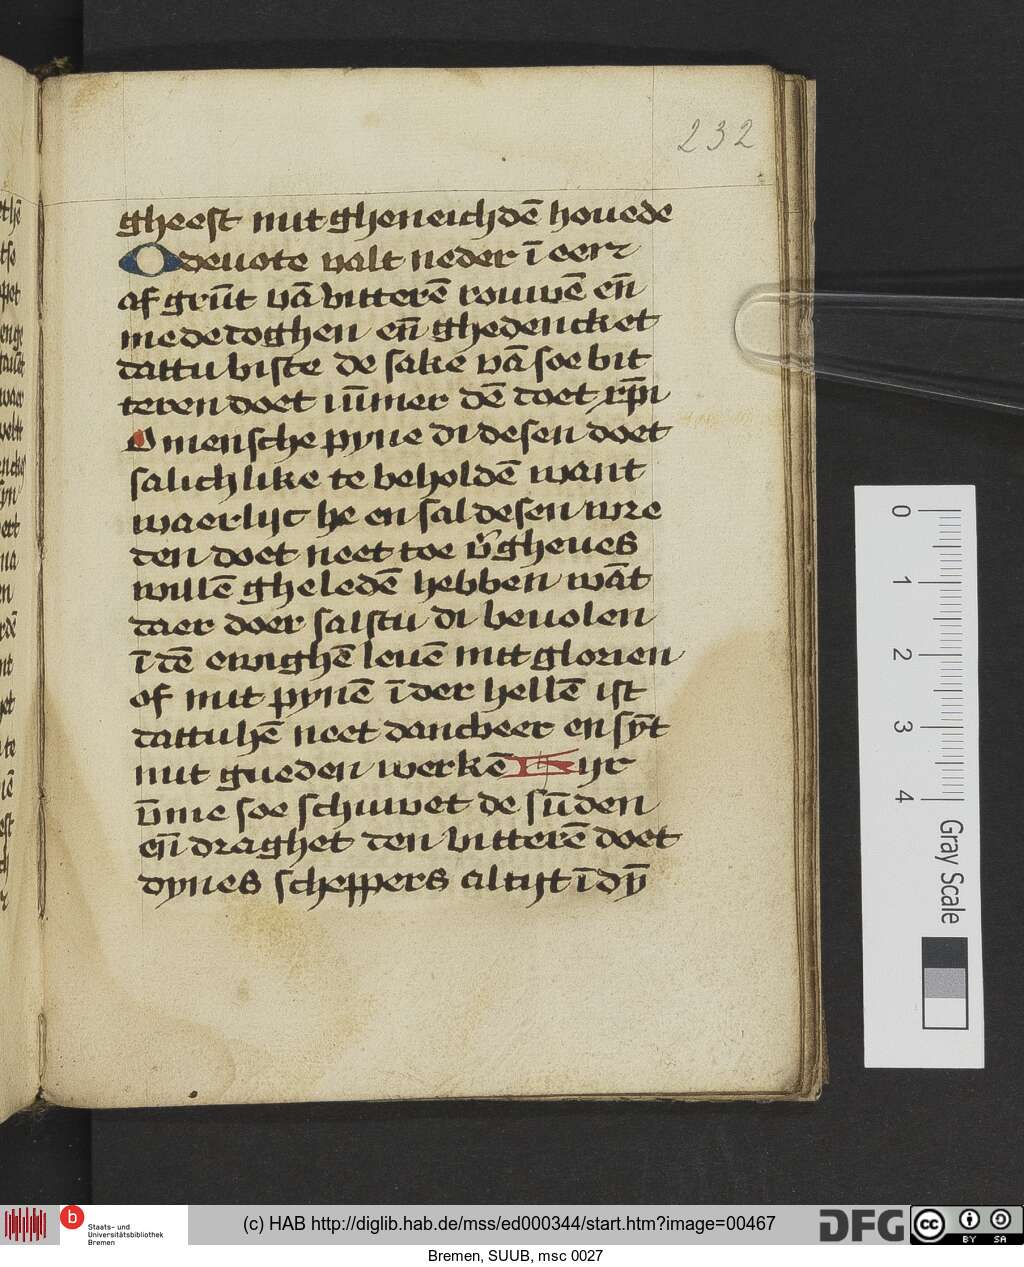 232
gheest mit gheneichdē houede
O deuote valt neder ī eerr
af grūt vā bitterē rouwē eñ
mededoghen eñ ghedencket
dattu biste de sake vā soe bit
teren doet iūmer dē doet xp̄i
O mensche pyne di desen doet
salichlike te beholdē want
waerlijc he en sal desen wre
den doet neet toe v̄gheues
willē gheledē hebben wāt
daer doer salstu di beuolen
ī dē ewighē leuē mit glorien
of mit pynē ī der hellē ist
dattu hē neet dancber en sȳt
mit gueden werkē Hijr
v̄me soe schuwet de sūden
eñ draghet den bitterē doet
dynes scheppers altijt ī dȳ
0
1
2
3
4
Gray Scale
b
Staats- und
Universitätsbibliothek
Bremen
(c) HAB http://diglib.hab.de/mss/ed000344/start.htm?image=00467
DFG
cc
BY SA
Bremen, SUUB, msc 0027